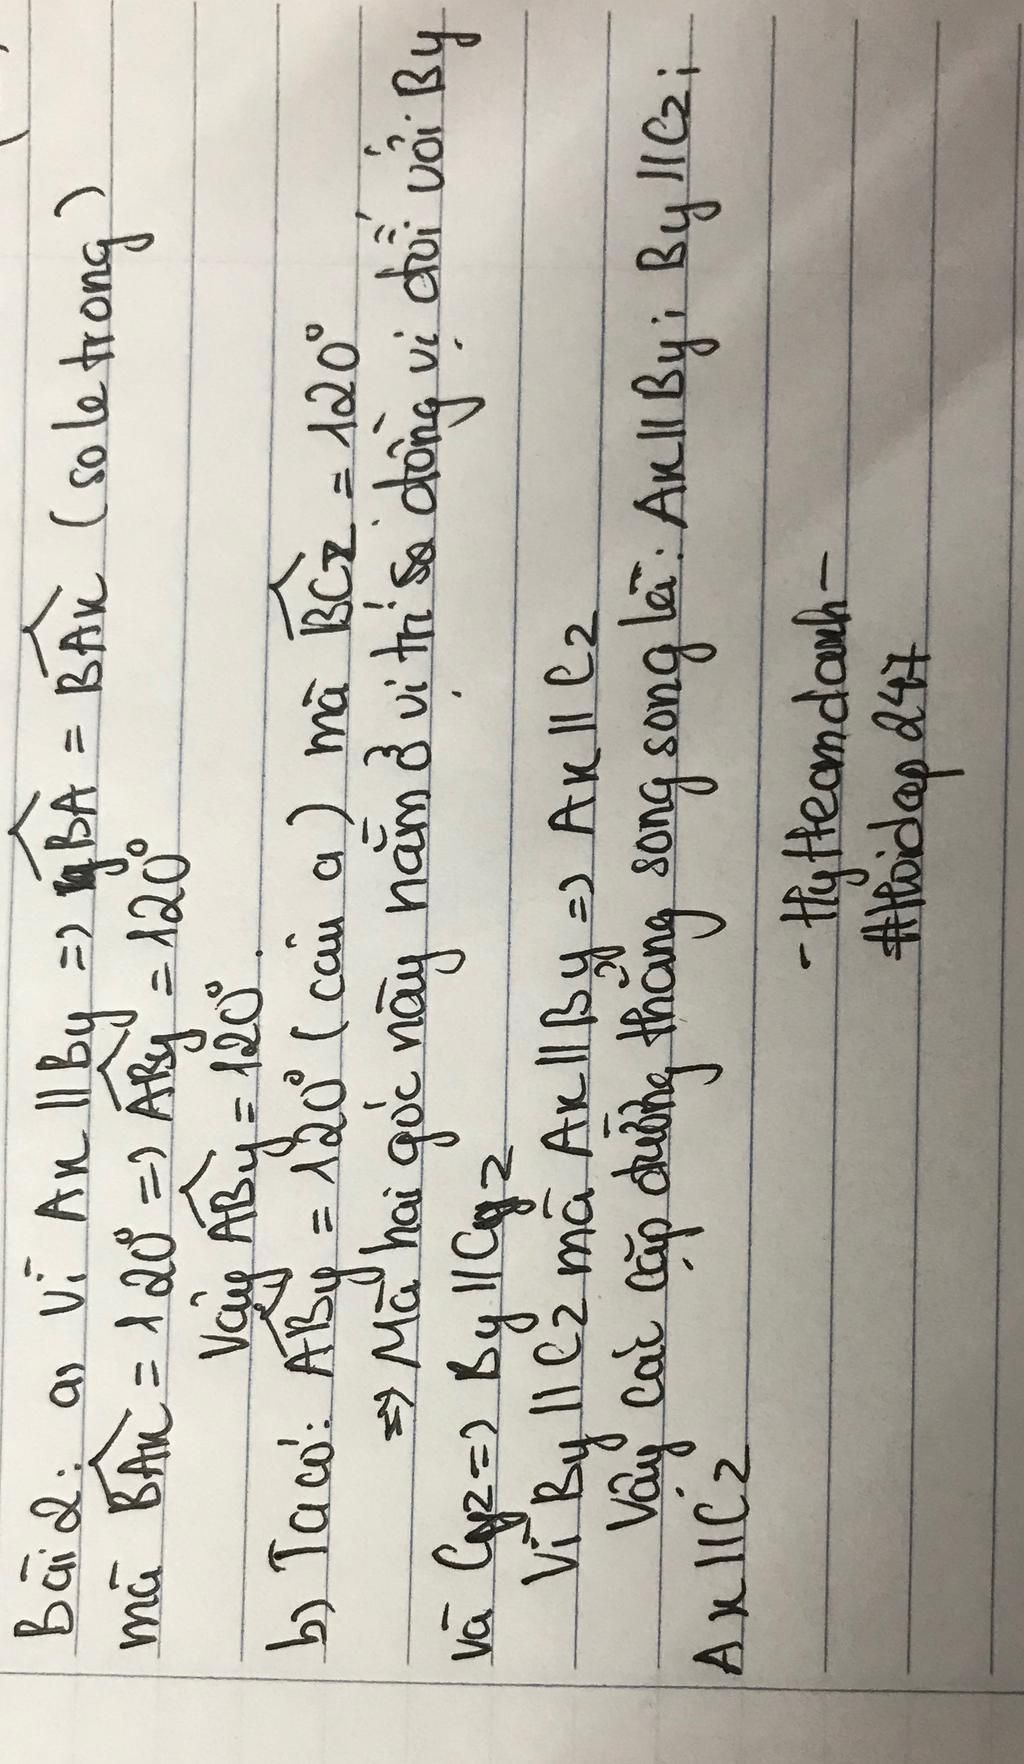 Bài 2: a, Vì Ax // By => yBA = BAx (so le trong)
mà BAx = 120° => ABy = 120°
Vậy ABy = 120°.
b) Ta có: ABy = 120° (câu a) mà BCz = 120°
=> Mà hai góc này nằm ở vị trí đồng vị đối với By
và Cz => By // Cz
Vì By // Cz mà Ax // By => Ax // Cz
Vậy các cặp đường thẳng song song là: Ax // By; By // Cz;
Ax // Cz
- Hytteamdanh -
#Hoidap247